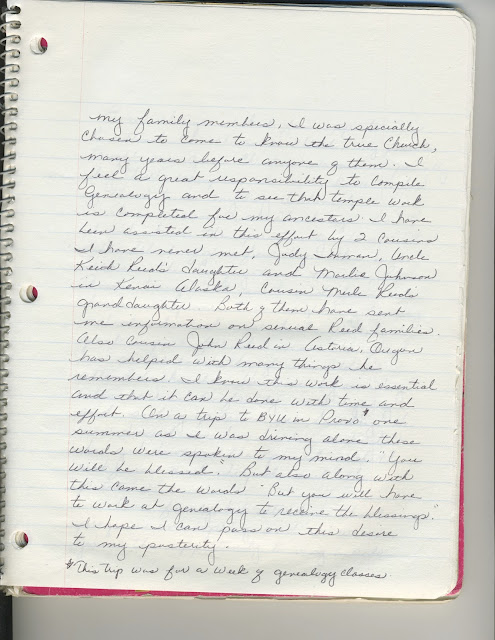 my family members, I was specially
chosen to come to know the true Church,
many years before anyone of them. I
feel a great responsibility to compile
Genealogy and to see that temple work
is completed for my ancestors. I have
been assisted in this effort by 2 cousins
I have never met, Judy Uncle
Reed's daughter and Johnson
in Kenai Alaska, Cousin Merle Reed's
granddaughter. Both of them have sent
me information on several Reed families.
Also cousin John Reed in Astoria, Oregon
has helped with many things he
remembers. I know this work is essential
and that it can be done with time and
effort. On a trip to BYU in Provo* one
summer as I was driving alone these
words were spoken to my mind. "You
will be blessed". But also along with
this came the words "But you will have
to work at genealogy to receive the blessings".
I hope I can pass on this desire
to my posterity.
* This trip was for a week of genealogy classes